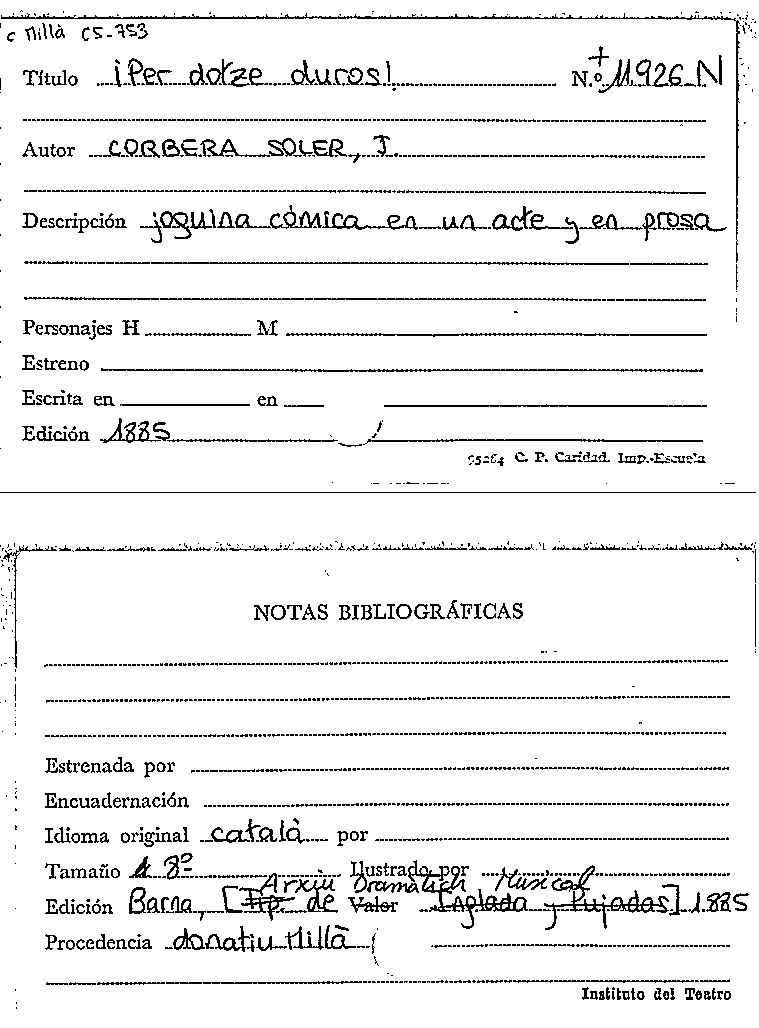 c Millà CS-753
Título ¡Per dotze duros! N.º + 11926 N
Autor CORBERA SOLER, J.
Descripción joguina cómica en un acte y en prosa
Personajes H M
Estreno
Escrita en en
Edición 1885
95264 C. P. Caridad. Imp.-Escuela
NOTAS BIBLIOGRÁFICAS
Estrenada por
Encuadernación
Idioma original català por
Tamaño 8º Ilustrado por
Arxiu Dramàtich Musical
Edición Barna, [Tip. de Valor Inglada y Pujadas] 1885
Procedencia donatiu Millà
Instituto del Teatro